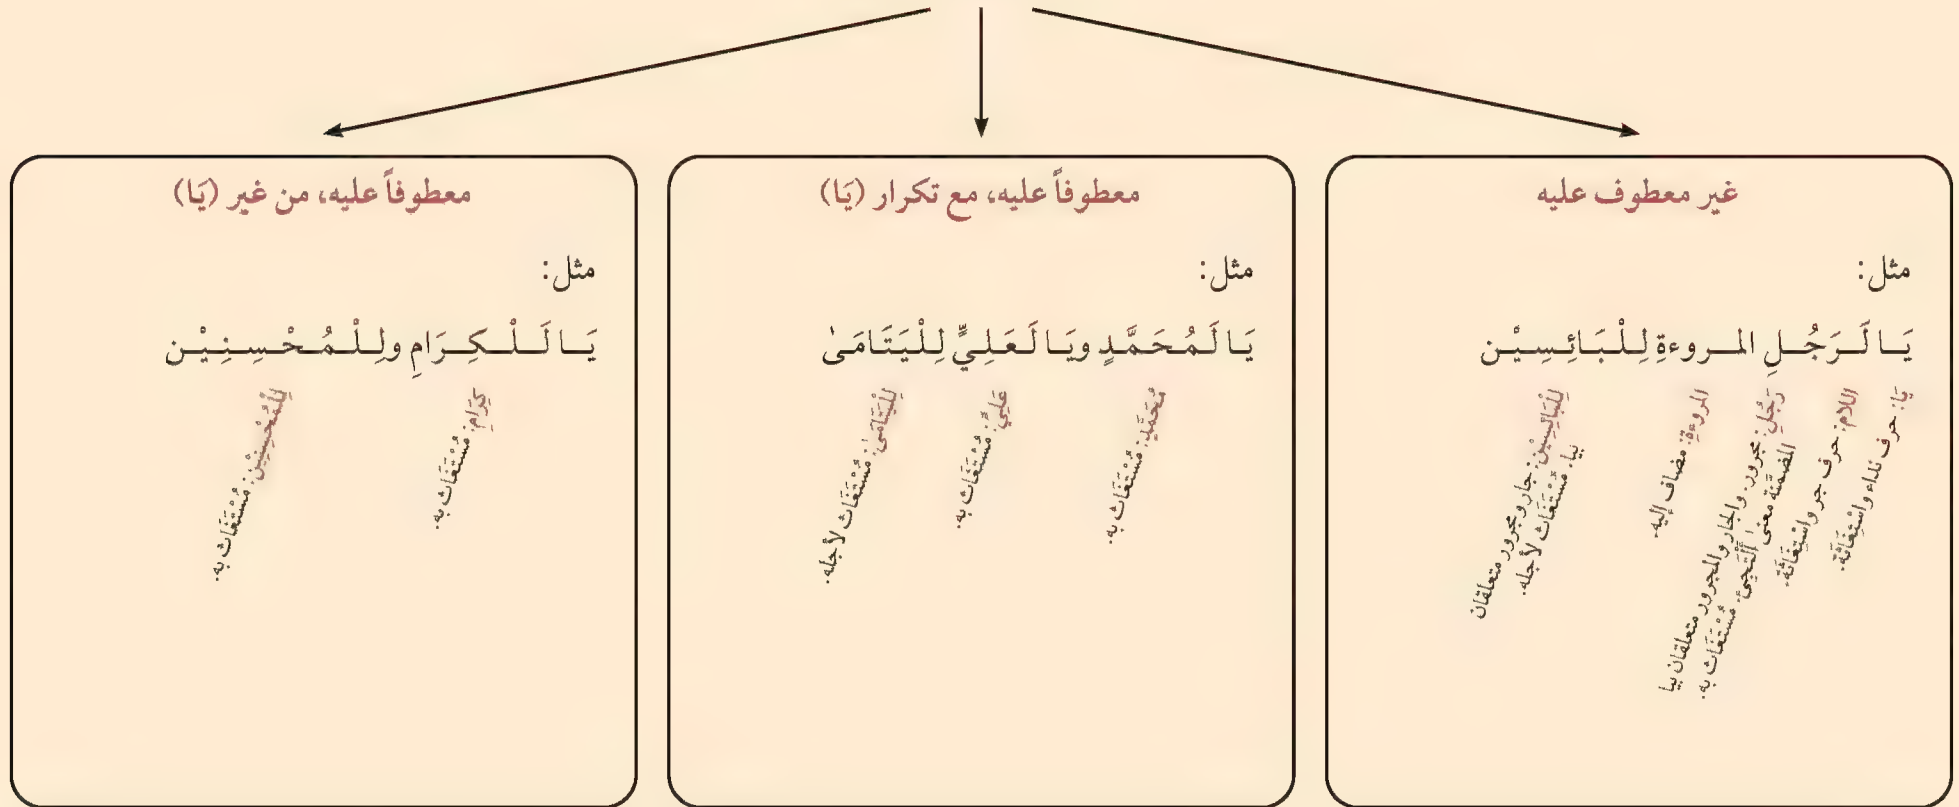 غير معطوف عليه
مثل:
يَا لَرَجُلِ المروءةِ لِلْبَائِسِيْن
يَا: حرف نداء واسْتِغَاثَة.
اللام: حرف جر واسْتِغَاثَة.
رَجُلِ: مجرور. والجار والمجرور متعلقان بيا
المضمَّنة معنىٰ أَلْتَجِئُ. مُسْتَغَاث به.
المروءةِ: مضاف إليه.
لِلْبَائِسِيْن: جار ومجرور متعلقان
بيا. مُسْتَغَاث لأجله.
معطوفاً عليه، مع تكرار (يَا)
مثل:
يَا لَمُحَمَّدٍ ويَا لَعَلِيٍّ لِلْيَتَامَىٰ
مُحَمَّدٍ: مُسْتَغَاث به.
عَلِيٍّ: مُسْتَغَاث به.
لِلْيَتَامَىٰ: مُسْتَغَاث لأجله.
معطوفاً عليه، من غير (يَا)
مثل:
يَا لَلْكِرَامِ ولِلْمُحْسِنِيْن
كِرَامِ: مُسْتَغَاث به.
لِلْمُحْسِنِيْن: مُسْتَغَاث به.